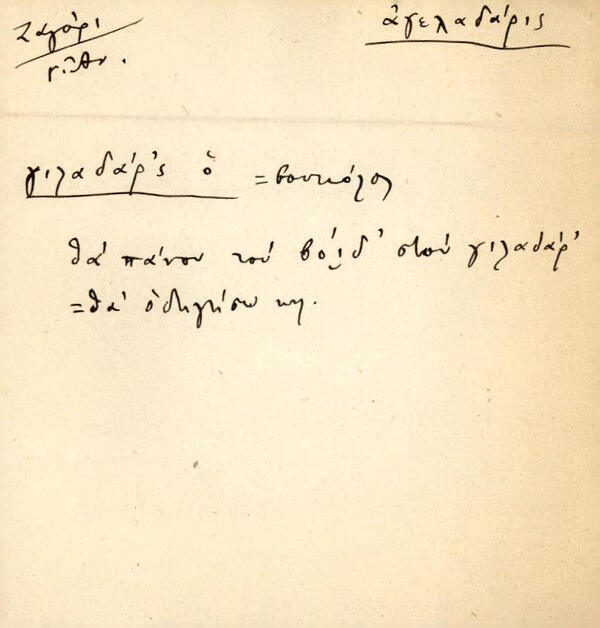 Ζαγόρι
ἀγελαδάρις
γιλαδάρ'ς ὁ = βουκόλος
θά πάνου τοὺ βόιδ' στοὺ γιλαδάρ'
= θά ὁδηγήσω κη.